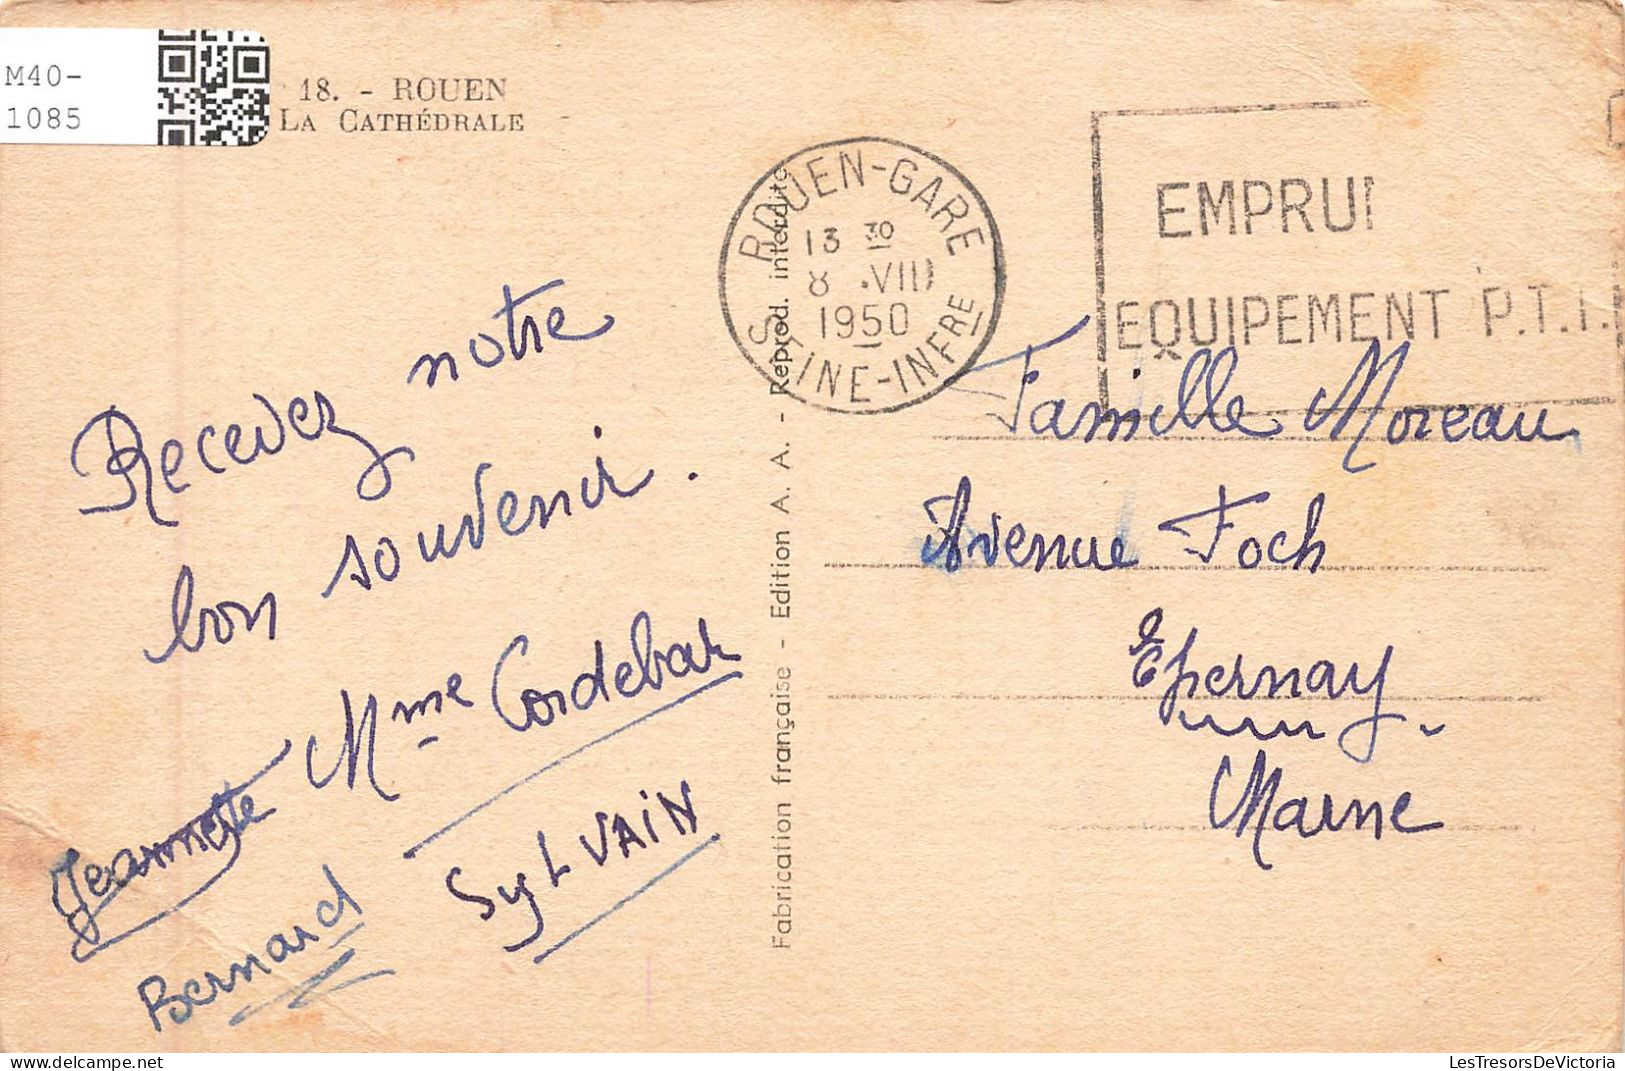 M40-
1085
18. - ROUEN
LA CATHÉDRALE
ROUEN-GARE
13 30
8 .VIII
1950
SEINE-INFRE
EMPRUN
EQUIPEMENT P.T.T.
Recevez notre
bon souvenir.
Mme Cordebar
Jeannette
Bernard
SyLVAiN
Fabrication française - Edition A. A. - Reprod. interdite
Famille Moreau
Avenue Foch
Epernay
Marne
LesTresorsDeVictoria